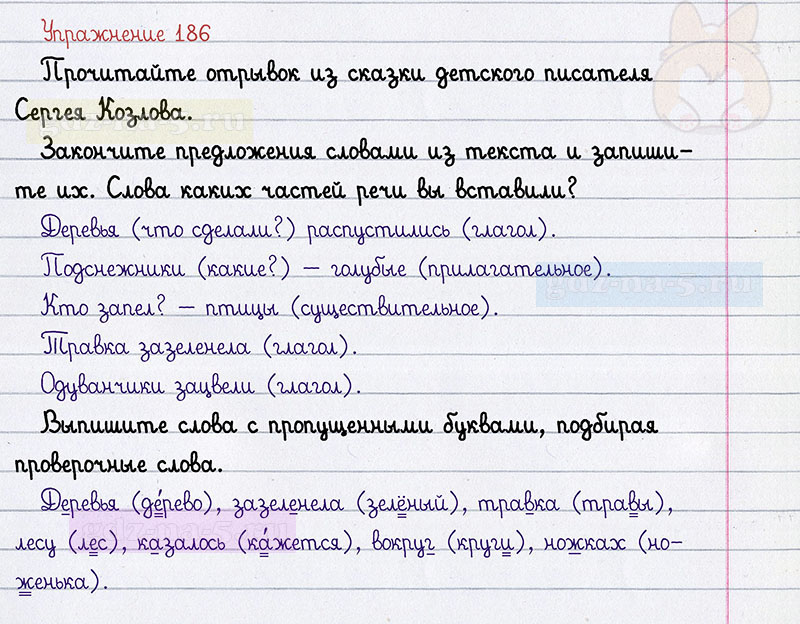 Упражнение 186
Прочитайте отрывок из сказки детского писателя
Сергея Козлова.
gdz-na-5.ru
Закончите предложения словами из текста и запиши-
те их. Слова каких частей речи вы вставили?
Деревья (что сделали?) распустились (глагол).
Подснежники (какие?) — голубые (прилагательное).
gdz-na-5.ru
Кто запел? — птицы (существительное).
Травка зазеленела (глагол).
Одуванчики зацвели (глагол).
Выпишите слова с пропущенными буквами, подбирая
проверочные слова.
Деревья (де́рево), зазеленела (зелёный), травка (травы),
gdz-na-5.ru
лесу (лес), казалось (ка́жется), вокруг (круги), ножках (но-
женька).